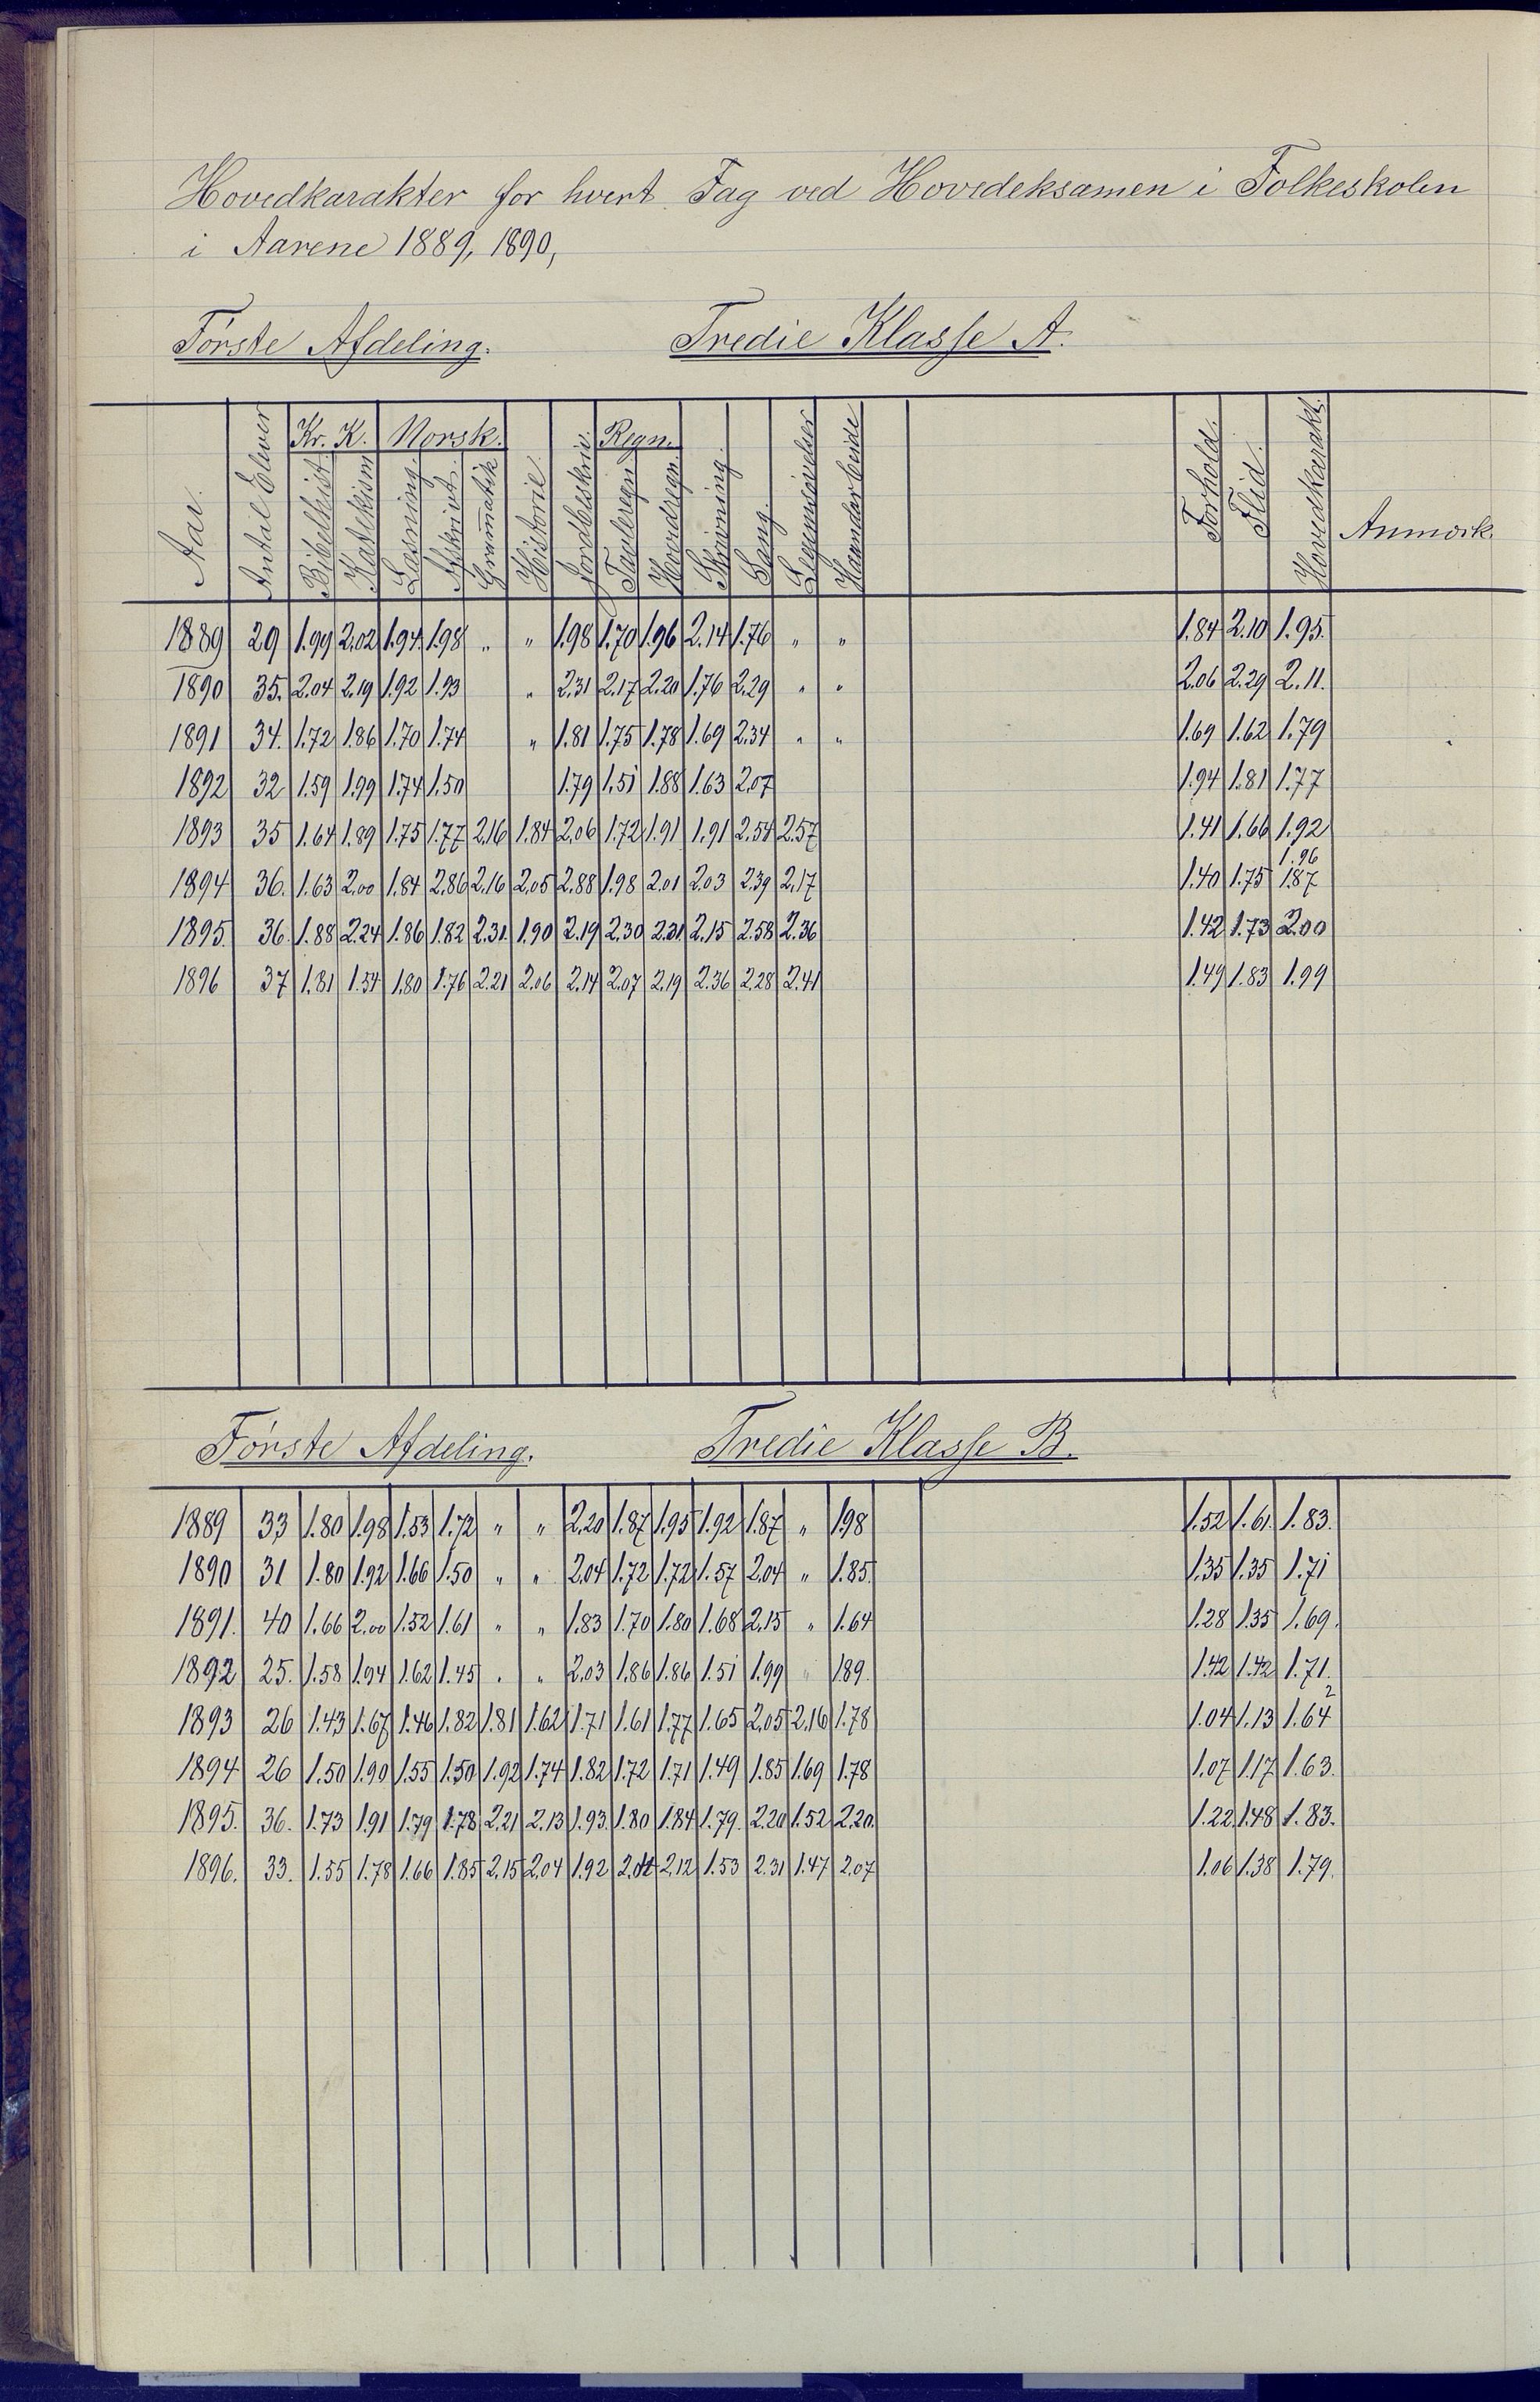 Hovedkarakter for hvert Fag ved Hovedeksamen i Folkeskolen
i Aarene 1889, 1890,
Første Afdeling. Tredie Klasse A.
Aar. Antal Elever Kr. K. Bibelhist. Katekism Norsk. Læsning. Afskrivt. Grammatik Historie Jordbeskriv. Regn. Tavleregn Hovedregn. Skrivning. Sang. Legemsøvelser Haandarbeide Forhold. Flid. Hovedkarakt. Anmærk.
1889 29 1.99 2.02 1.94. 1.98 " " 1.98 1.70 1.96 2.14 1.76 " " 1.84 2.10 1.95.
1890 35. 2.04 2.19 1.92 1.93 " 2.31 2.17 2.20 1.76 2.29 " " 2.06 2.29 2.11.
1891 34. 1.72 1.86 1.70 1.74 " 1.81 1.75 1.78 1.69 2.34 " " 1.69 1.62 1.79
1892 32 1.59 1.99 1.74 1.50 1.79 1.51 1.88 1.63 2.07 1.94 1.81 1.77
1893 35 1.64 1.89 1.75 1.77 2.16 1.84 2.06 1.72 1.91 1.91 2.54 2.57 1.41 1.66 1.92
1.96
1894 36. 1.63 2.00 1.84 2.86 2.16 2.05 2.88 1.98 2.01 2.03 2.39 2.17 1.40 1.75 1.87
1895. 36 1.88 2.24 1.86 1.82 2.31. 1.90 2.19 2.30 2.31 2.15 2.58 2.36 1.42 1.73 2.00
1896 37 1.81 1.54 1.80 1.76 2.21 2.06 2.14 2.07 2.19 2.36 2.28 2.41 1.49 1.83 1.99
Første Afdeling. Tredie Klasse B.
1889 33 1.80 1.98 1.53 1.72 " " 2.20 1.87 1.95 1.92 1.87 " 1.98 1.52 1.61. 1.83.
1890 31 1.80 1.92 1.66 1.50 " " 2.04 1.72 1.72 1.57 2.04 " 1.85. 1.35 1.35 1.71
1891. 40 1.66 2.00 1.52 1.61 " " 1.83 1.70 1.80 1.68 2.15 " 1.64 1.28 1.35 1.69.
1892 25. 1.58 1.94 1.62 1.45 " " 2.03 1.86 1.86 1.51 1.99 " 1.89. 1.42 1.42 1.71.
1893 26 1.43 1.67 1.46 1.82 1.81 1.62 1.71 1.61 1.77 1.65 2.05 2.16 1.78 1.04 1.13 1.64 2
1894 26 1.50 1.90 1.55 1.50 1.92 1.74 1.82 1.72 1.71 1.49 1.85 1.69 1.78 1.07 1.17 1.63.
1895. 36. 1.73 1.91 1.79 1.78 2.21 2.13 1.93. 1.80 1.84 1.79. 2.20 1.52 2.20. 1.22 1.48 1.83.
1896. 33. 1.55 1.78 1.66 1.85 2.15 2.04 1.92 2.12 1.53 2.31 1.47 2.07 1.06 1.38 1.79.